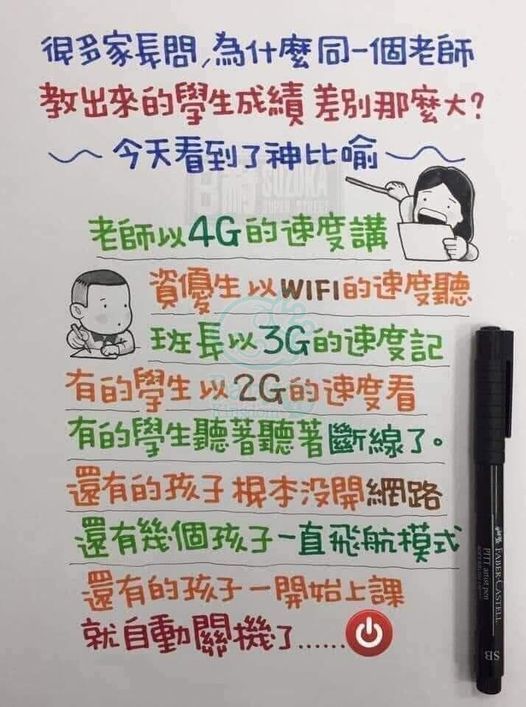 很多家長問,為什麼同一個老師
教出來的學生成績差別那麼大?
~今天看到了神比喻~
老師以4G的速度講
資優生以WIFI的速度聽
班長以3G的速度記
有的學生以2G的速度看
有的學生聽著聽著斷線了。
還有的孩子根本沒開網路
還有幾個孩子一直飛航模式
還有的孩子一開始上課
就自動關機了......
SUZUKA
SUPER STREET
FABER-CASTELL
PITT artist pen
SB